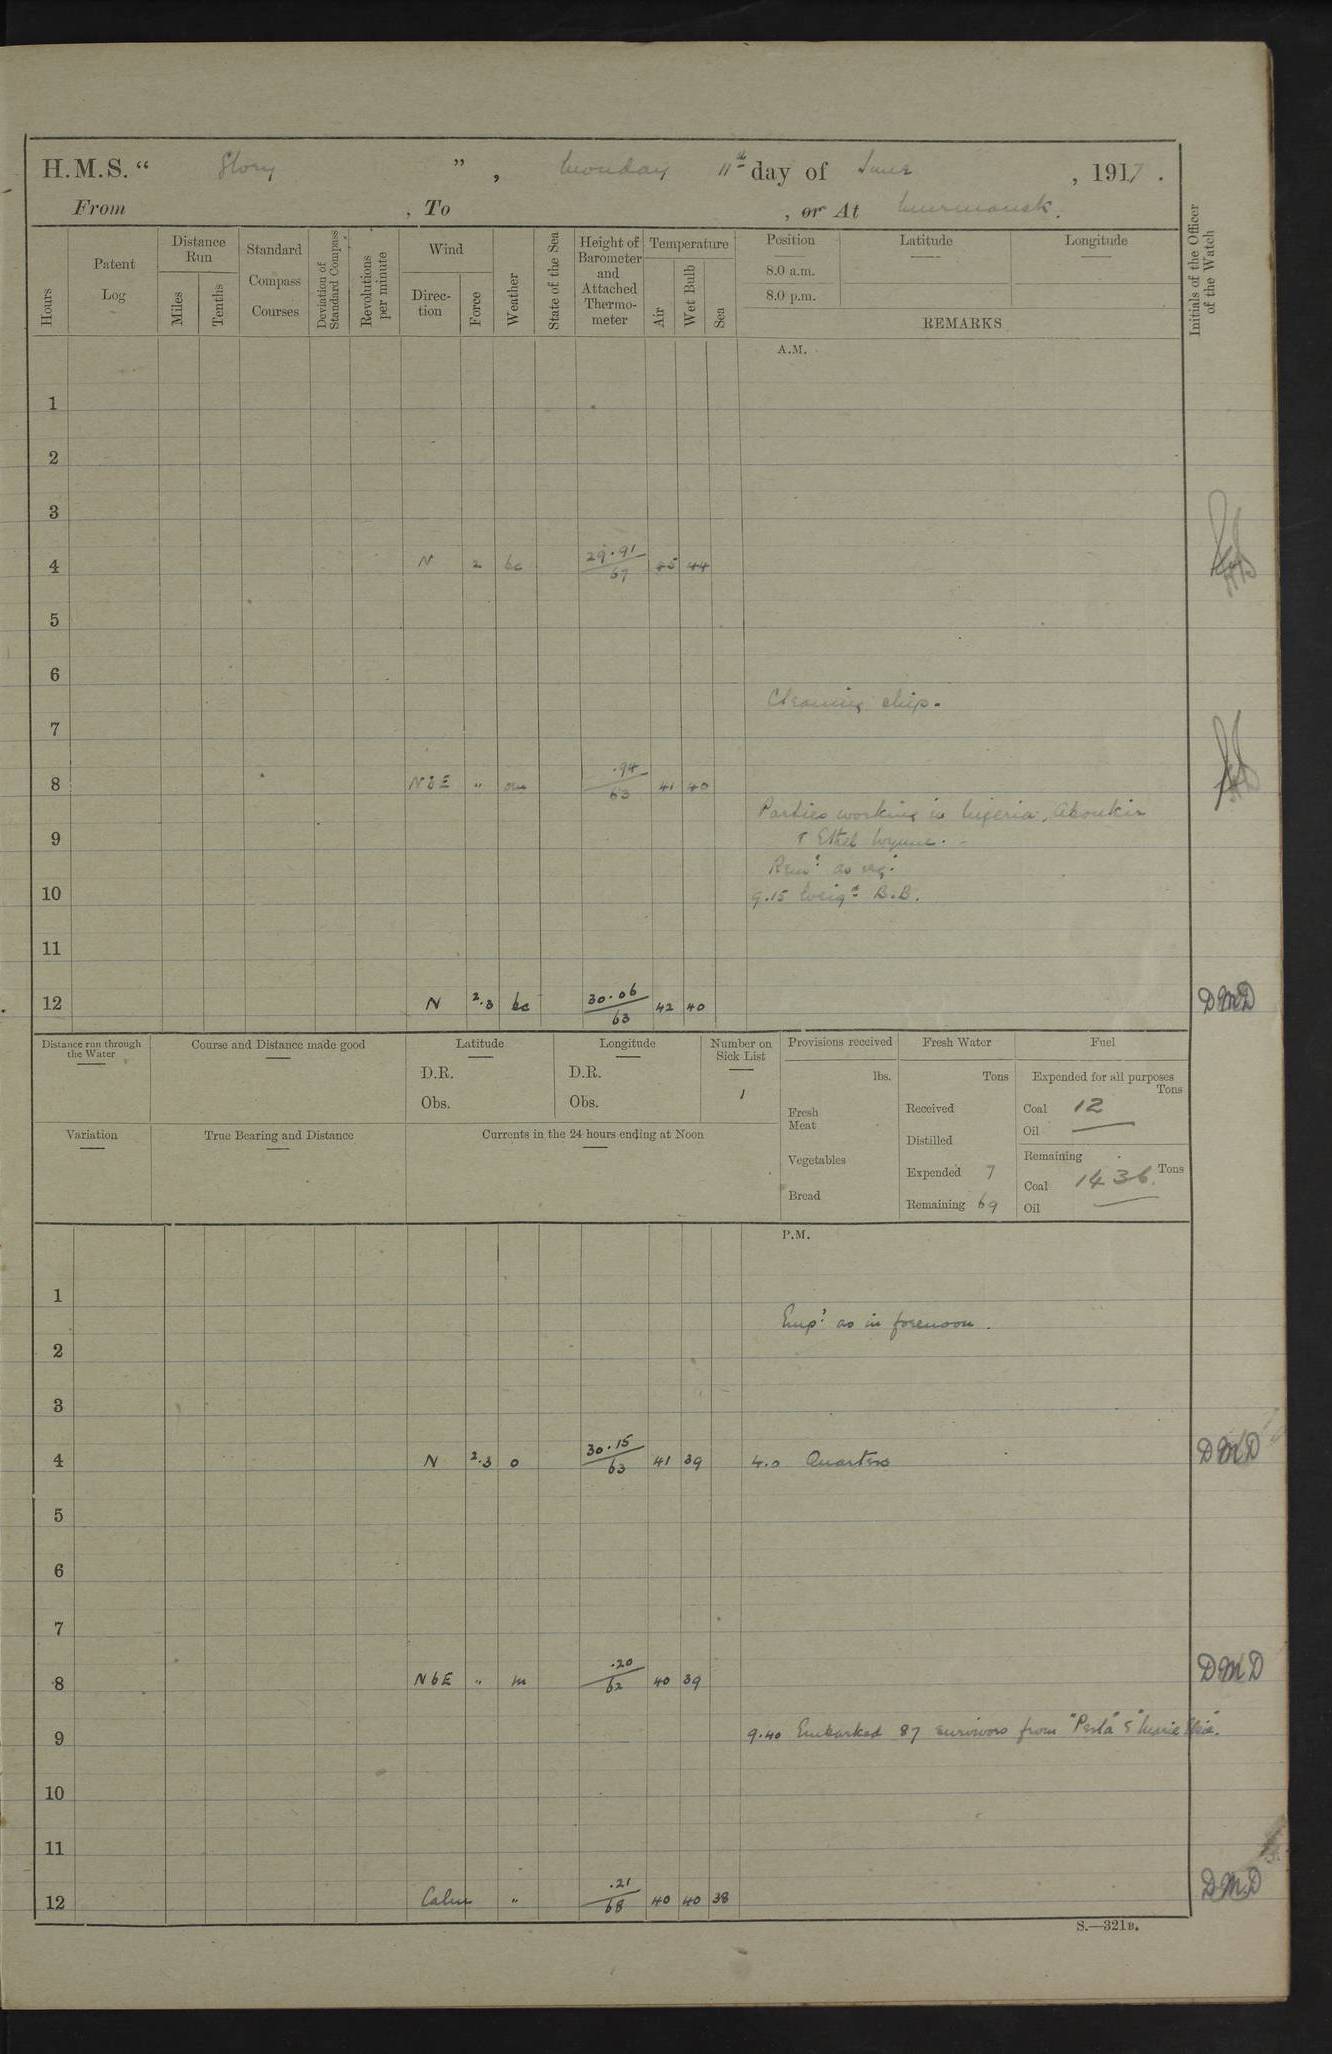 H.M.S. “ Glory ” , Monday 11th day of June , 1917 .
From , To , or At Murmansk.
Hours
Patent Log
Distance Run
Miles
Tenths
Standard Compass Courses
Deviation of Standard Compass
Revolutions per minute
Wind
Direc-tion
Force
Weather
State of the Sea
Height of Barometer and Attached Thermo-meter
Temperature
Air
Wet Bulb
Sea
Position
8.0 a.m.
8.0 p.m.
Latitude
Longitude
REMARKS
Initials of the Officer of the Watch
A.M.
1
2
3
4 N 2 bc 29.91 67 45 44
5
6
Cleaning ship.
7
8 NbE " om .94 63 41 40
Parties working in Nigeria, Aboukir
9 & Ethel Wynne. -
Remr as req.
10 9.15 Weigd B.B.
11
12 N 2.3 bc 30.06 63 42 40 DMD
Distance run through the Water
Course and Distance made good
Latitude
D.R.
Obs.
Longitude
D.R.
Obs.
Number on Sick List
1
Provisions received
lbs.
Fresh Meat
Vegetables
Bread
Fresh Water
Tons
Received
Distilled
Expended 7
Remaining 69
Fuel
Expended for all purposes
Tons
Coal 12
Oil
Remaining
Tons
Coal 1436.
Oil
Variation
True Bearing and Distance
Currents in the 24 hours ending at Noon
P.M.
1
Empd as in forenoon.
2
3
4 N 2.3 o 30.15 63 41 39 4.0 Quarters DMD
5
6
7
8 NbE " m .20 62 40 39 DMD
9 9.40 Embarked 87 survivors from "Perla" &
10
11
12 Calm " .21 68 40 40 38 DMD
S.—321B.